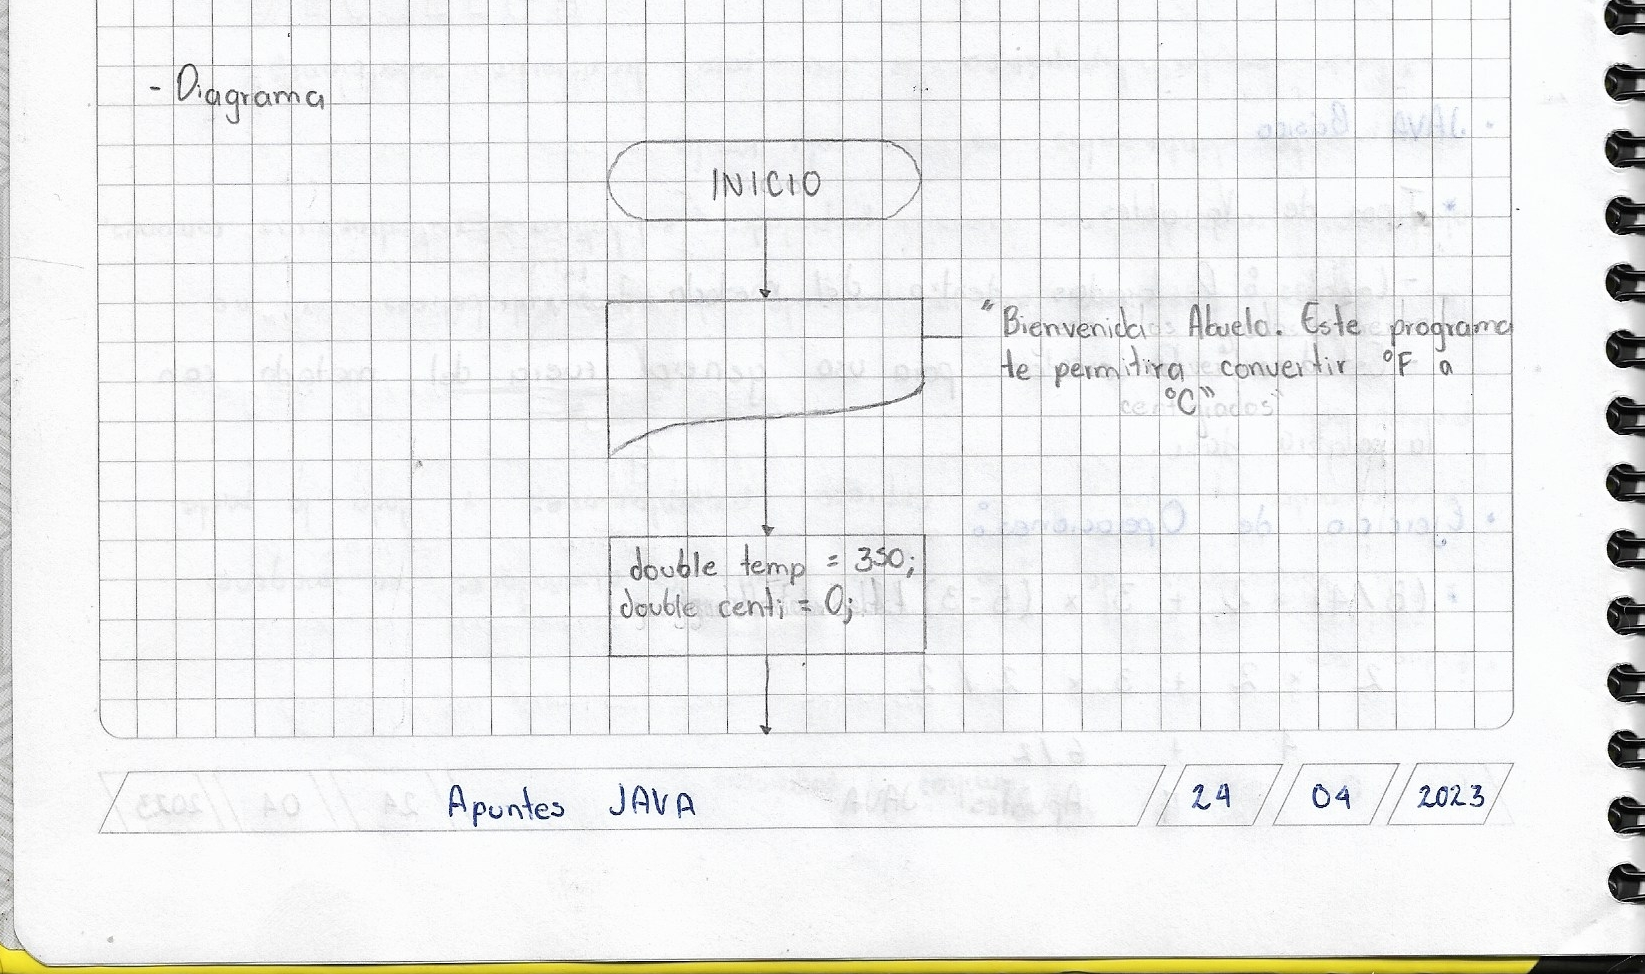 - Diagrama
INICIO
"Bienvenida Abuela. Este programa
te permitira convertir °F a
°C"
double temp = 350;
double centi = 0;
Apuntes JAVA 24 04 2023